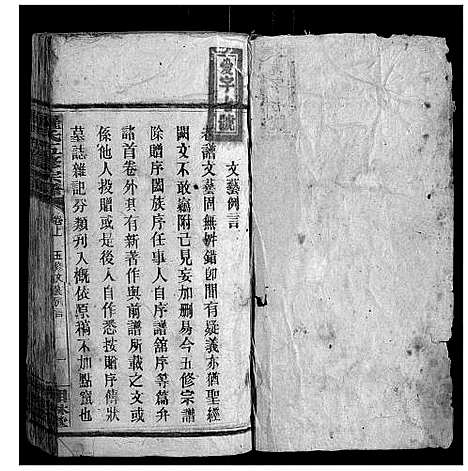 文藝例言
舊譜文藝固無舛錯即間有疑義亦猶聖經
闕文不敢嶽附己見妄加刪易今五修宗譜
除贈序國族序任事人自序譜舘序等篇弁
諸首卷外其有新著作與前譜所載之文或
係他人投贈或是後人自作悉按贈序傳狀
墓誌雜記分類刋入槪依原稿不加點竄也
卷上
五修文藝例言
一